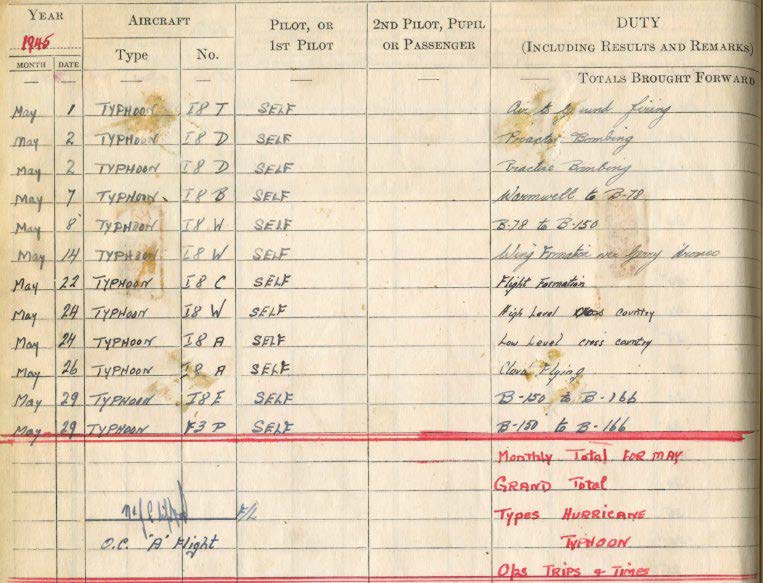 YEAR AIRCRAFT PILOT, OR 2ND PILOT, PUPIL DUTY
1945 1ST PILOT OR PASSENGER (INCLUDING RESULTS AND REMARKS)
MONTH DATE Type No.
— — — — — — — TOTALS BROUGHT FORWARD
May 1 TYPHOON I8 T SELF Air to ground firing
May 2 TYPHOON I8 D SELF Practise Bombing
May 2 TYPHOON I8 D SELF Practise Bombing
May 7 TYPHOON I8 B SELF Warmwell to B-78
May 8 TYPHOON I8 W SELF B-78 to B-150
May 14 TYPHOON I8 W SELF Wing Formation
May 22 TYPHOON I8 C SELF Flight Formation
May 24 TYPHOON I8 W SELF High Level cross country
May 24 TYPHOON I8 A SELF Low Level cross country
May 26 TYPHOON I8 A SELF Cloud Flying
May 29 TYPHOON I8 E SELF B-150 to B-166
May 29 TYPHOON F3 P SELF B-150 to B-166
Monthly Total FOR MAY
GRAND Total
F/L Types HURRICANE
O.C. "A" Flight TYPHOON
Ops TRIPS & TIMES